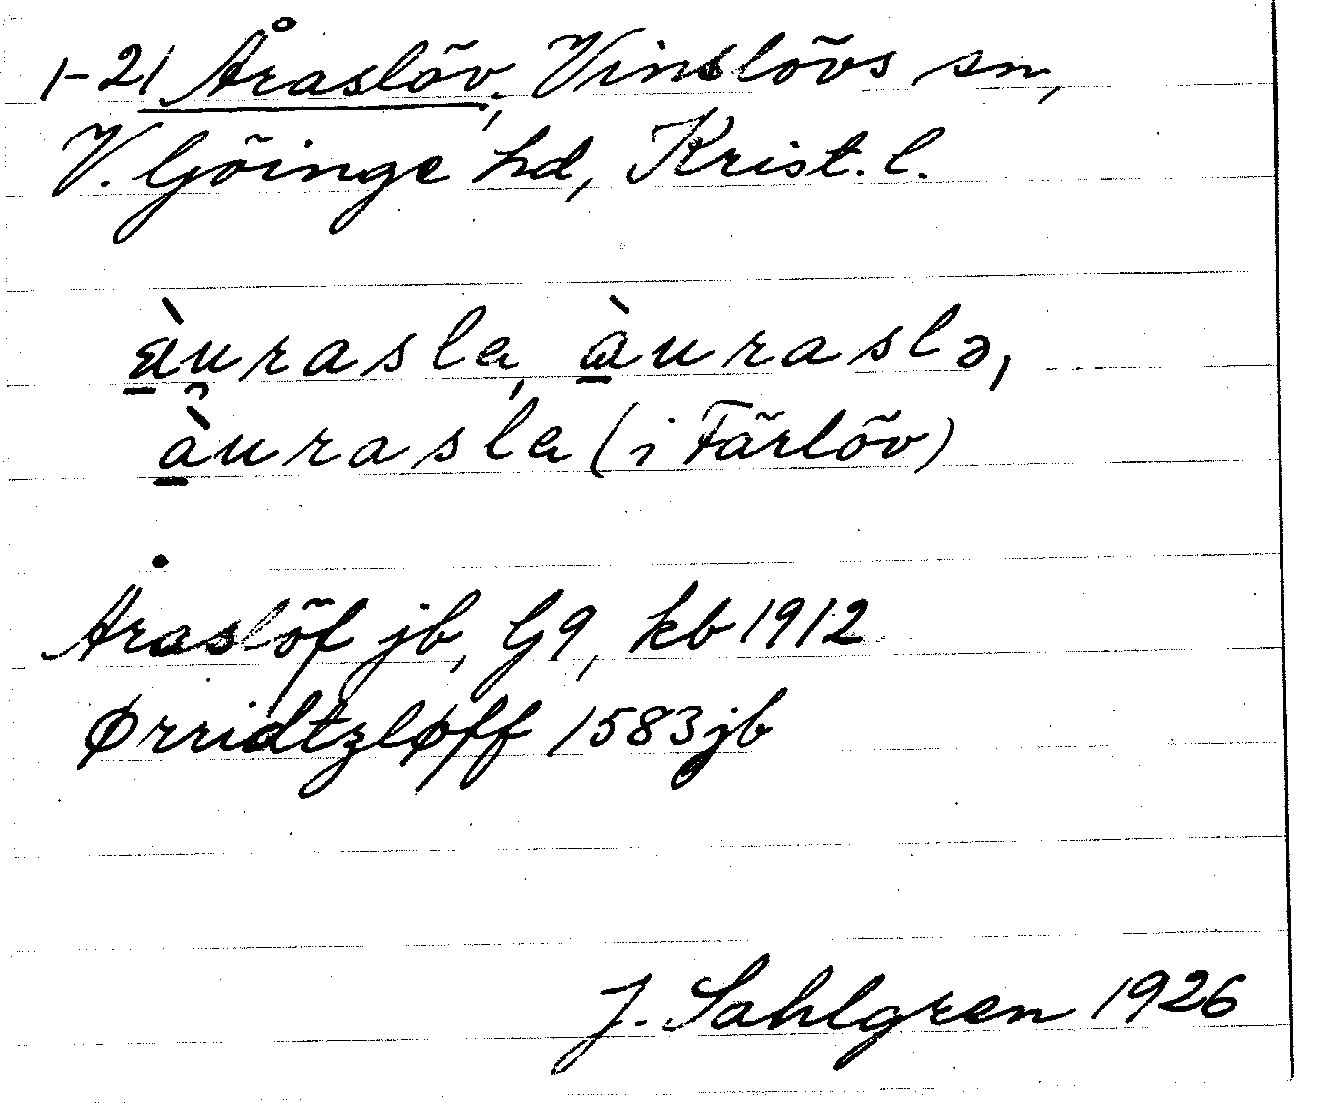 1-21 Åraslöv, Vinslövs sn,
V. Göinge hd, Krist. l.
à̱urasla, à̱uraslə,
à̱urasla (i Färlöv)
Åraslöf jb, G9, kb 1912
Ørridtzløff 1583 jb
J. Sahlgren 1926